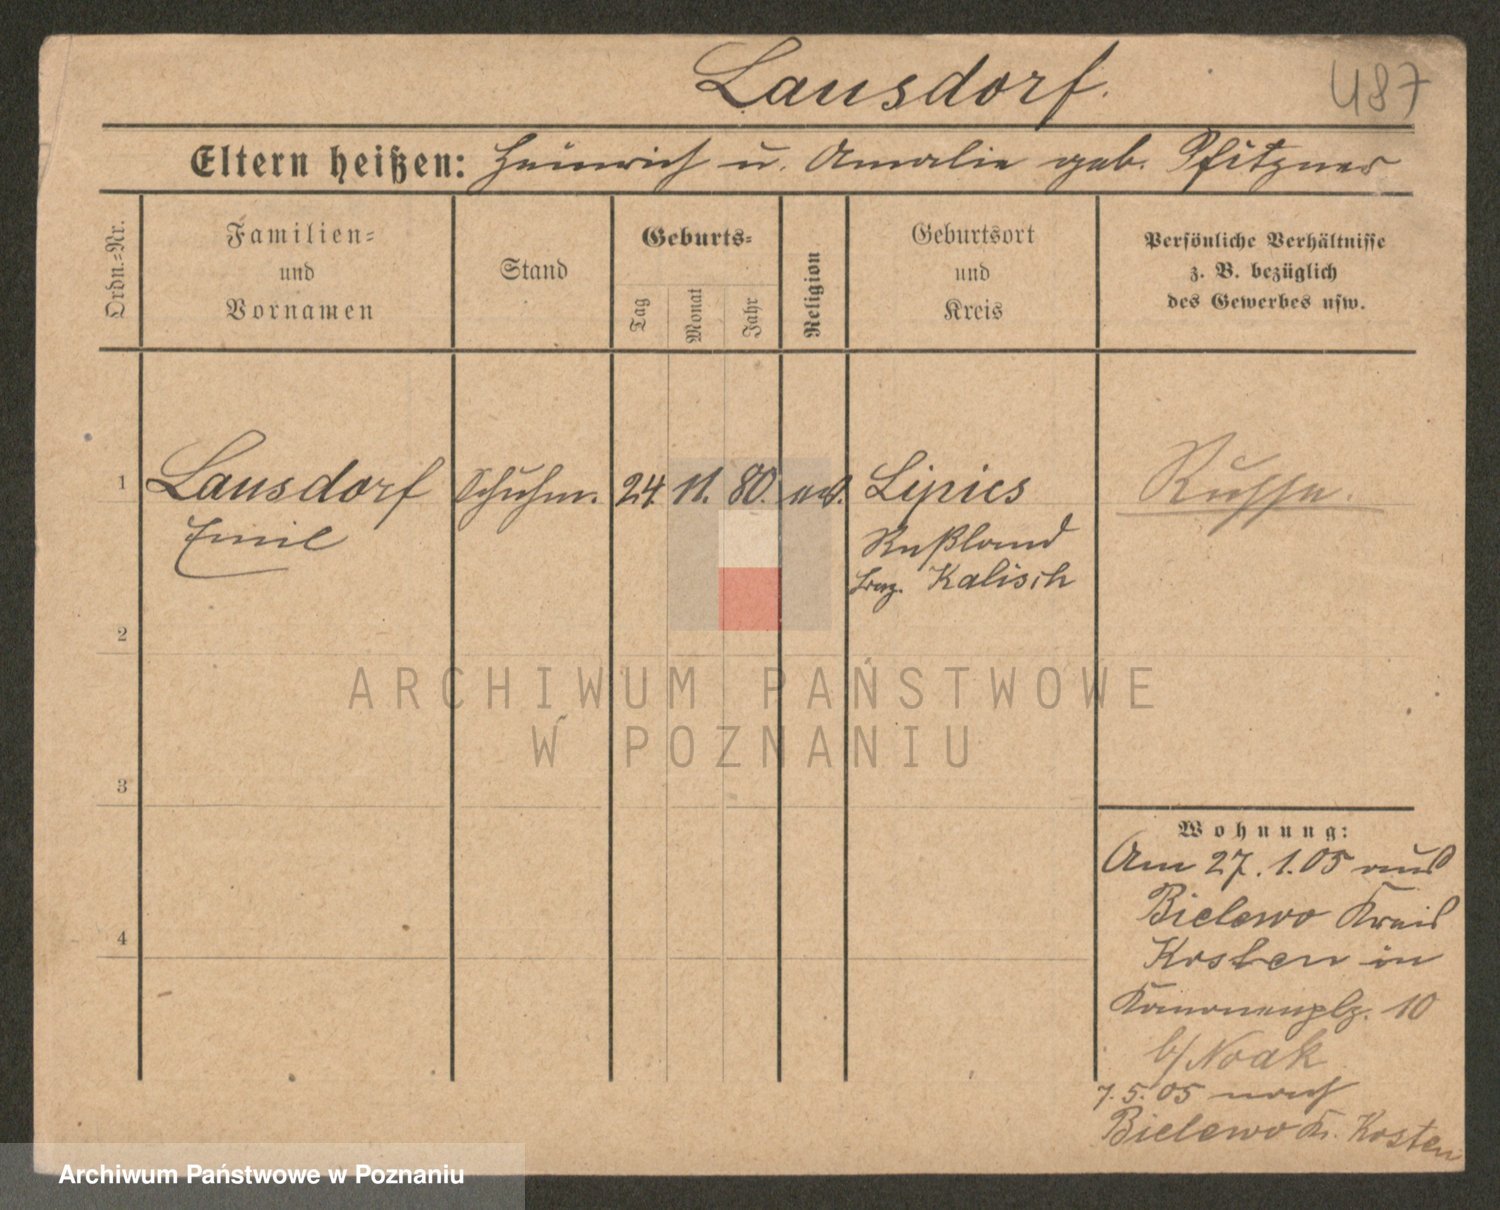 Lausdorf.
487
Eltern heißen: Heinrich u. Amalie geb. Pfitzner
Ordn.-Nr.
Familien-
und
Vornamen
Stand
Geburts-
Tag
Monat
Jahr
Religion
Geburtsort
und
Kreis
Persönliche Verhältnisse
z. B. bezüglich
des Gewerbes usw.
1 Lausdorf Schuhm. 24. 11. 80. ev. Lipies Russe.
Emil
Rußland
Kalisch
2
3
4
ARCHIWUM PAŃSTWOWE
W POZNANIU
Wohnung:
Am 27.1.05 aus
Bielewo Kreis
Kosten in
Kanonenplz. 10
b/ Noak
7.5.05 nach
Bielewo Kr. Kosten
Archiwum Państwowe w Poznaniu